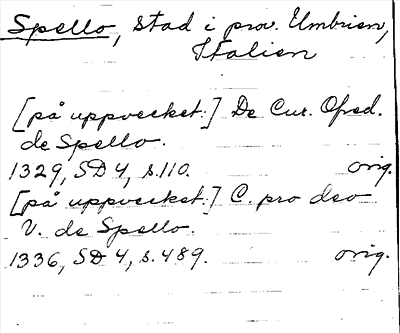 Spello, stad i prov. Umbrien,
Italien
[på uppvecket:] De Cur. Ofred.
de Spello.
1329, SD 4, s. 110. orig.
[på uppvecket:] C. pro deo
V. de Spello.
1336, SD 4, s. 489. orig.